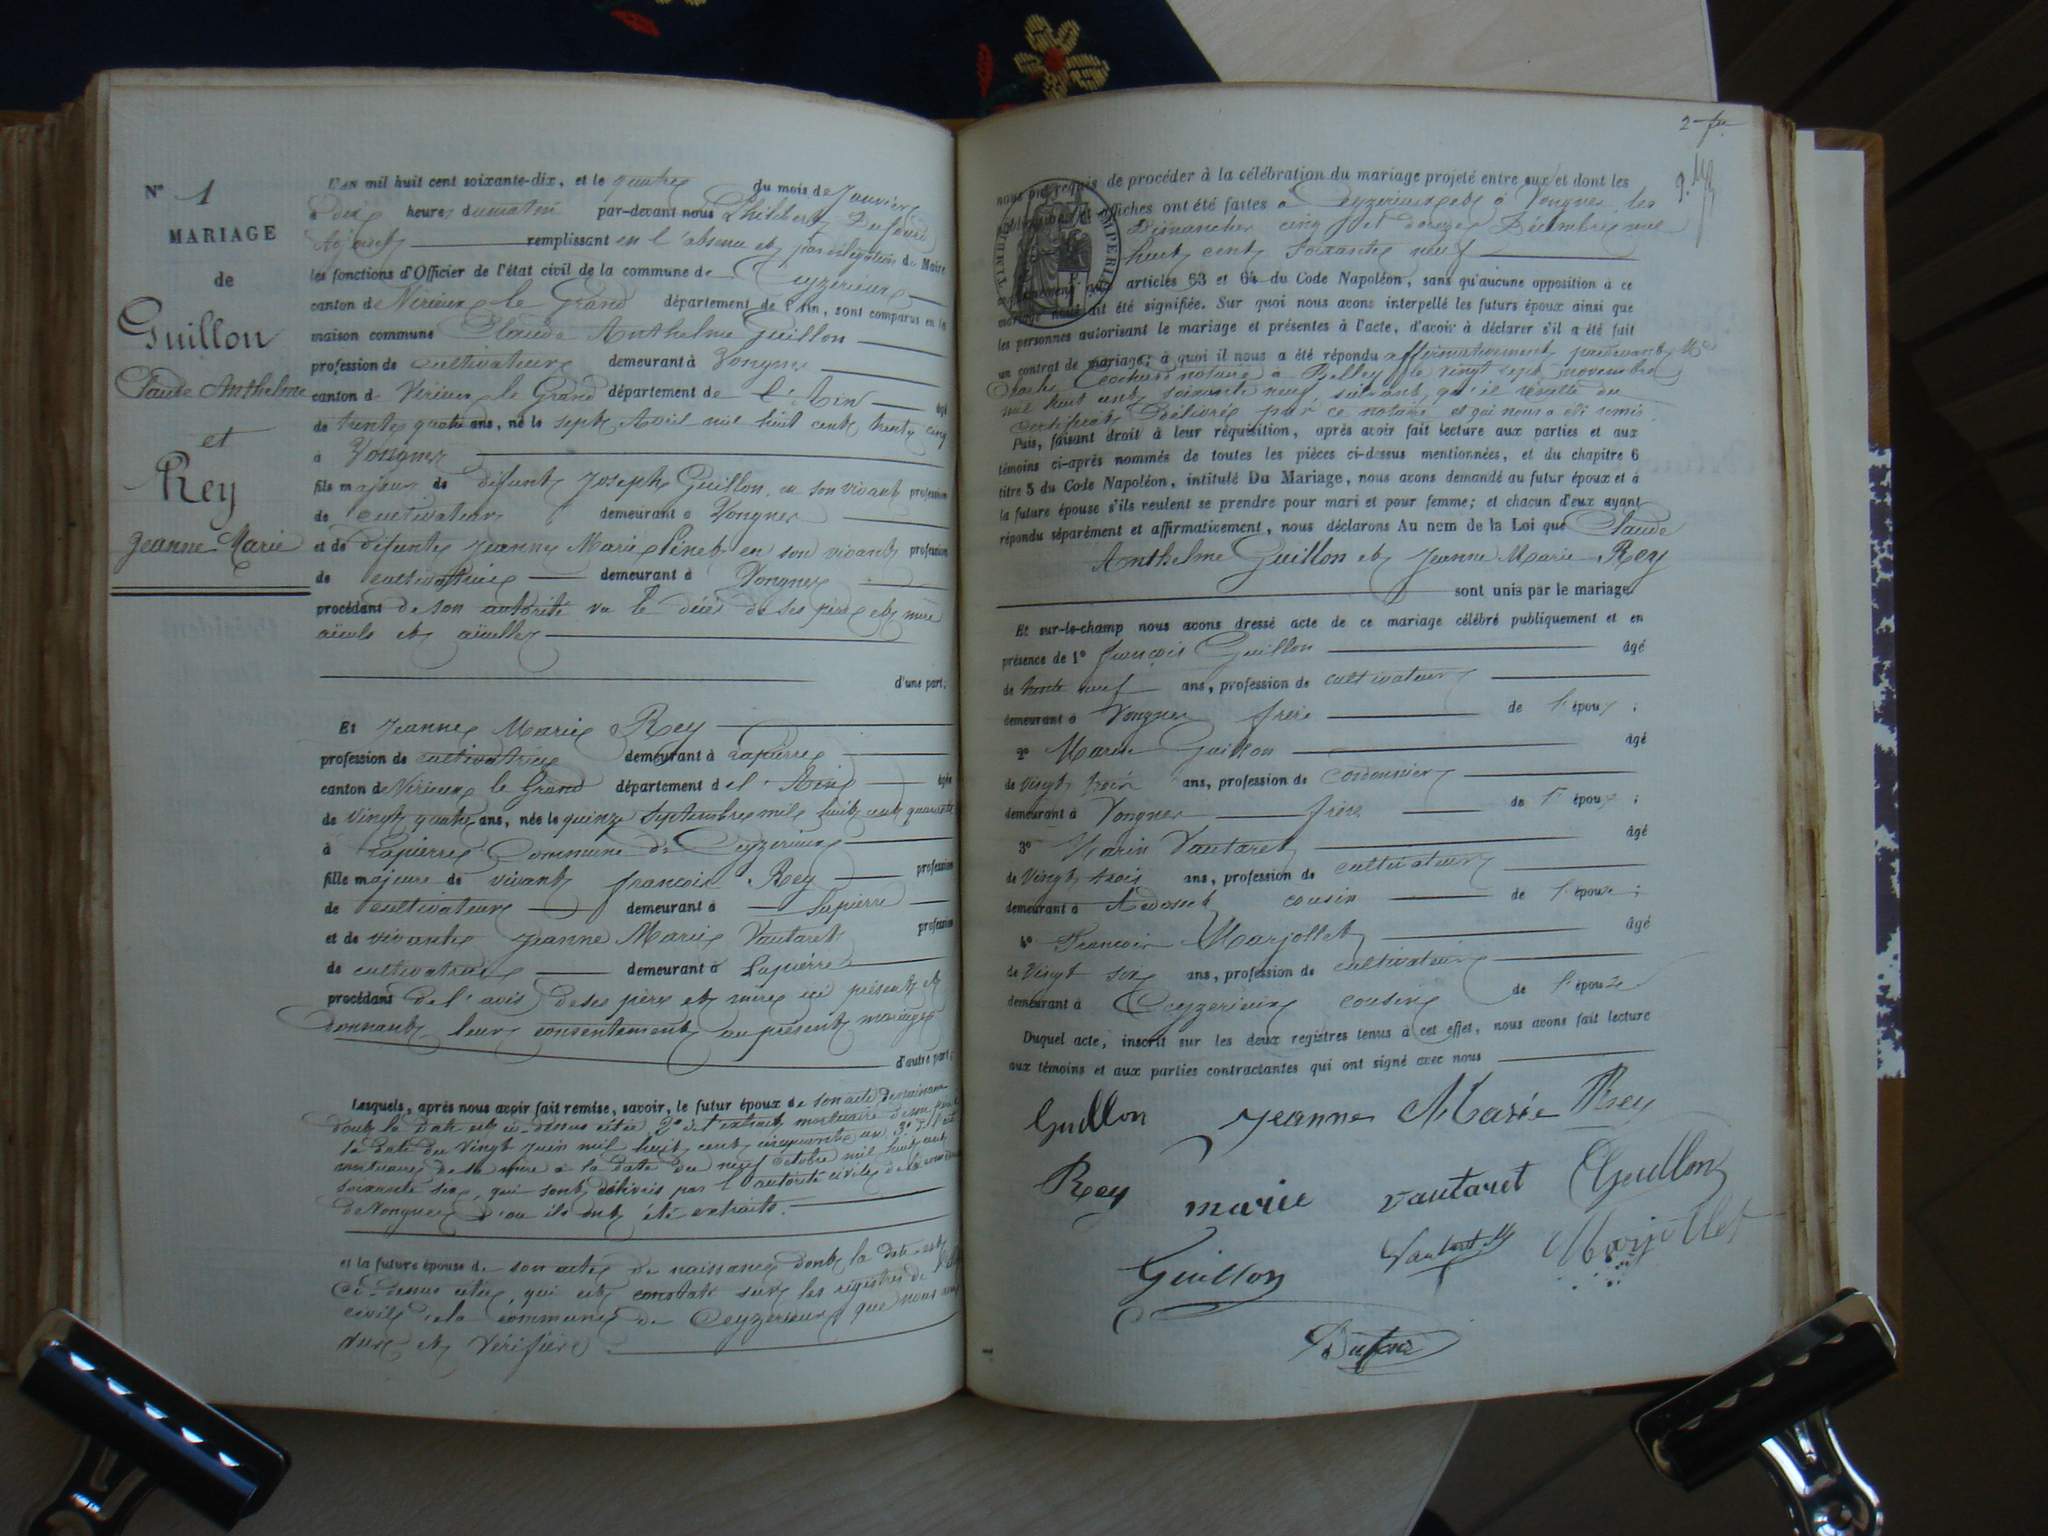 N° 1
MARIAGE
de
Guillon
Claude Anthelme
et
Rey
Jeanne Marie
L'AN mil huit cent soixante-dix, et le quatre du mois de Janvier
à dix heures du matin par-devant nous Philibert Dufour
Adjoint remplissant en l'absence et par délégation du Maire
les fonctions d'Officier de l'état civil de la commune de Ceyzerieux
canton de Virieux le Grand département de l'Ain, sont comparus en la
maison commune Claude Anthelme Guillon
profession de cultivateur demeurant à Vongnes
canton de Virieux le Grand département de l'Ain âgé
de trente quatre ans, né le sept Avril mil huit cent trente cinq
à Vongnes
fils majeur de défunt Joseph Guillon, en son vivant profession
de cultivateur demeurant à Vongnes
et de défunte Jeanne Marie Pinet en son vivant profession
de cultivatrice demeurant à Vongnes
procédant de son autorité vu le décès de ses père et mère
aïeuls et aïeulles
d'une part;
Et Jeanne Marie Rey
profession de cultivatrice demeurant à Lapierre
canton de Virieux le Grand département de l'Ain âgée
de vingt quatre ans, née le quinze Septembre mil huit cent quarante
à Lapierre Commune de Ceyzerieux
fille majeure de vivant françois Rey profession
de cultivateur demeurant à Lapierre
et de vivante Jeanne Marie Vautaret profession
de cultivatrice demeurant à Lapierre
procédant de l'avis de ses père et mère ici présents et
donnant leur consentement au présent mariage
d'autre part;
Lesquels, après nous avoir fait remise, savoir, le futur époux de son acte de naissance
dont la date est ci dessus citée, 2° de l'extrait mortuaire de son père à
la date du vingt Juin mil huit cent cinquante un 3° de l'ext
mortuaire de sa mère à la date du neuf octobre mil huit cent
soixante six, qui sont délivrés par l'autorité civile de la commune
de Vongnes d'où ils ont été extraits.
et la future épouse de son acte de naissance dont la date est
ci-dessus citée, qui est constaté sur les registres de l'état
civil de la commune de Ceyzerieux que nous avons
vus et vérifiés
2
nous ont requis de procéder à la célébration du mariage projeté entre eux et dont les
publications et affiches ont été faites à Ceyzerieux et à Vongnes les
Dimanches cinq et douze Décembre mil
huit cent soixante neuf
TIMBRE IMPERIAL
conformément aux articles 63 et 64 du Code Napoléon, sans qu'aucune opposition à ce
mariage nous ait été signifiée. Sur quoi nous avons interpellé les futurs époux ainsi que
les personnes autorisant le mariage et présentes à l'acte, d'avoir à déclarer s'il a été fait
un contrat de mariage; à quoi il nous a été répondu affirmativement pardevant Me
notaire à Belley le vingt sept novembre
mil huit cent soixante neuf, suivant qu'il résulte du
certificat délivré par ce notaire et qui nous a été remis
Puis, faisant droit à leur réquisition, après avoir fait lecture aux parties et aux
témoins ci-après nommés de toutes les pièces ci-dessus mentionnées, et du chapitre 6
titre 5 du Code Napoléon, intitulé Du Mariage, nous avons demandé au futur époux et à
la future épouse s'ils veulent se prendre pour mari et pour femme; et chacun d'eux ayant
répondu séparément et affirmativement, nous déclarons Au nom de la Loi que Claude
Anthelme Guillon et Jeanne Marie Rey
sont unis par le mariage.
Et sur-le-champ nous avons dressé acte de ce mariage célébré publiquement et en
présence de 1° françois Guillon âgé
de trente neuf ans, profession de cultivateur
demeurant à Vongnes frère de l'époux;
2° Marin Guillon âgé
de vingt trois ans, profession de cordonnier
demeurant à Vongnes frère de l'époux;
3° Marin Vautaret âgé
de vingt trois ans, profession de cultivateur
demeurant à cousin de l'épouse;
4° François Marjollet âgé
de vingt six ans, profession de cultivateur
demeurant à Ceyzerieux cousin de l'épouse
Duquel acte, inscrit sur les deux registres tenus à cet effet, nous avons fait lecture
aux témoins et aux parties contractantes qui ont signé avec nous
Guillon Jeanne Marie Rey
Rey marie vautaret Guillon
Guillon Vautaret M Marjollet
Dufour